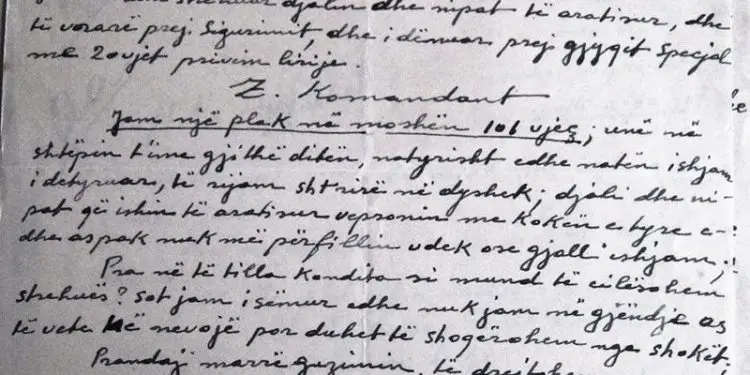 strehuar djalin dhe nipat të aratisur, dhe
të vorarë prej Sigurimit, dhe i dënuar prej gjyqit Special
me 20 vjet privim lirije.
Z. Komandant
Jam një plak në moshën 101 vjeç; unë në
shtëpin t'ime gjithë ditën, natyrisht edhe natën ishjam
i detyruar, të rijam shtrirë në dyshek; djali dhe ni-
pat që ishin të aratisur vepronin me kokën e tyre e-
dhe aspak nuk më përfillin vdek ose gjall ishjam;
Pra në të tilla kondita si mund të cilësohem
strehués? sot jam i sëmur edhe nuk jam në gjëndje as
të vete në nevojë por duhet të shoqërohem nga shokët.
Prandaj marrë guzimin, të drejtohem